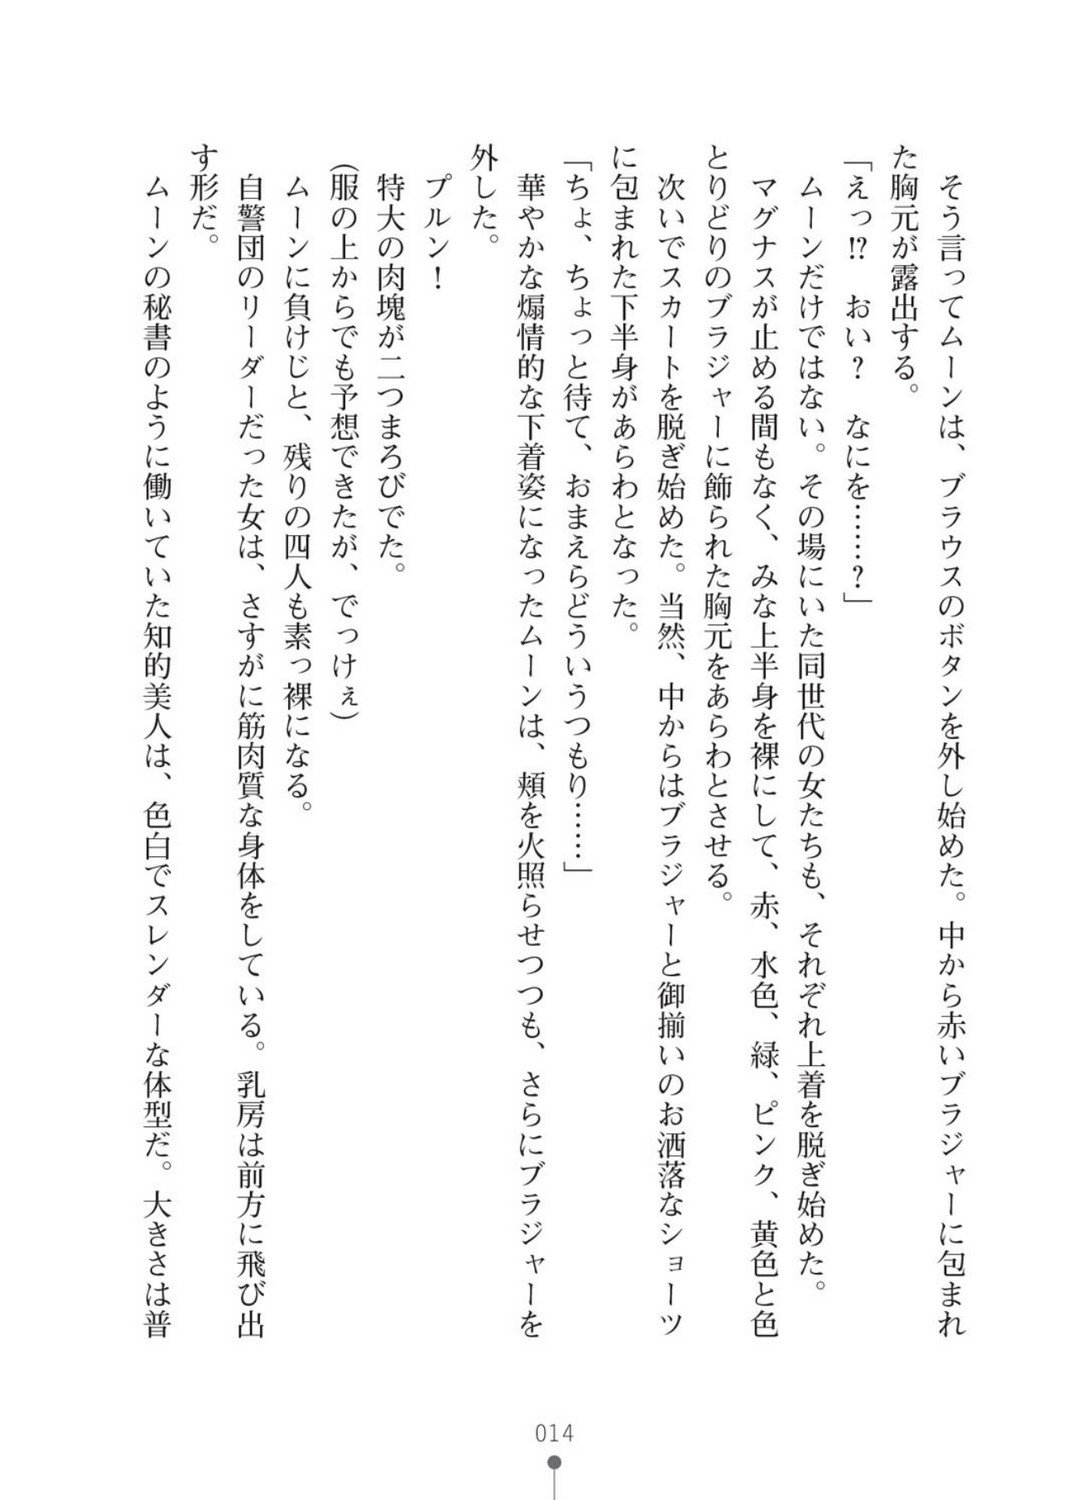 そう言ってムーンは、ブラウスのボタンを外し始めた。中から赤いブラジャーに包まれ
た胸元が露出する。
「えっ!?　おい？　なにを……？」
　ムーンだけではない。その場にいた同世代の女たちも、それぞれ上着を脱ぎ始めた。
　マグナスが止める間もなく、みな上半身を裸にして、赤、水色、緑、ピンク、黄色と色
とりどりのブラジャーに飾られた胸元をあらわとさせる。
　次いでスカートを脱ぎ始めた。当然、中からはブラジャーと御揃いのお洒落なショーツ
に包まれた下半身があらわとなった。
「ちょ、ちょっと待て、おまえらどういうつもり……」
　華やかな煽情的な下着姿になったムーンは、頬を火照らせつつも、さらにブラジャーを
外した。
　プルン！
　特大の肉塊が二つまろびでた。
（服の上からでも予想できたが、でっけぇ）
　ムーンに負けじと、残りの四人も素っ裸になる。
　自警団のリーダーだった女は、さすがに筋肉質な身体をしている。乳房は前方に飛び出
す形だ。
　ムーンの秘書のように働いていた知的美人は、色白でスレンダーな体型だ。大きさは普
014